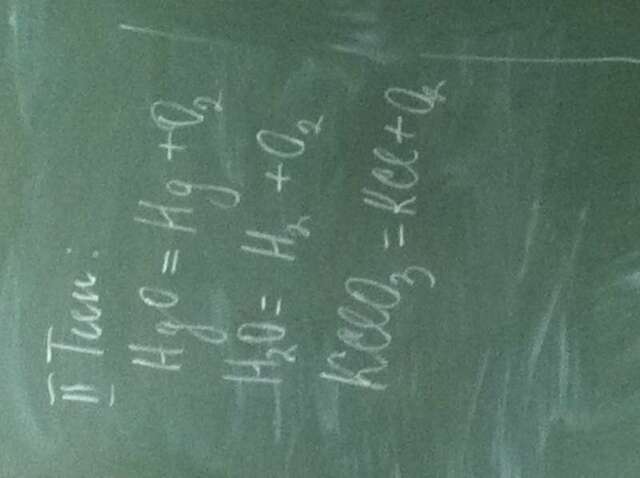 II Тип:
HgO = Hg + O₂
H₂O = H₂ + O₂
KClO₃ = KCl + O₂